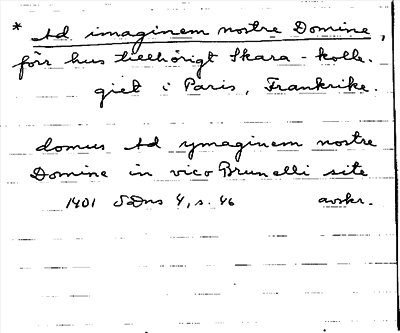 * Ad imaginem nostre Domine,
förr hus tillhörigt Skara-kolle-
giet i Paris, Frankrike.
domus Ad ymaginem nostre
Domine in vico Brunelli site
1401 SDns 4, s. 46 avskr.